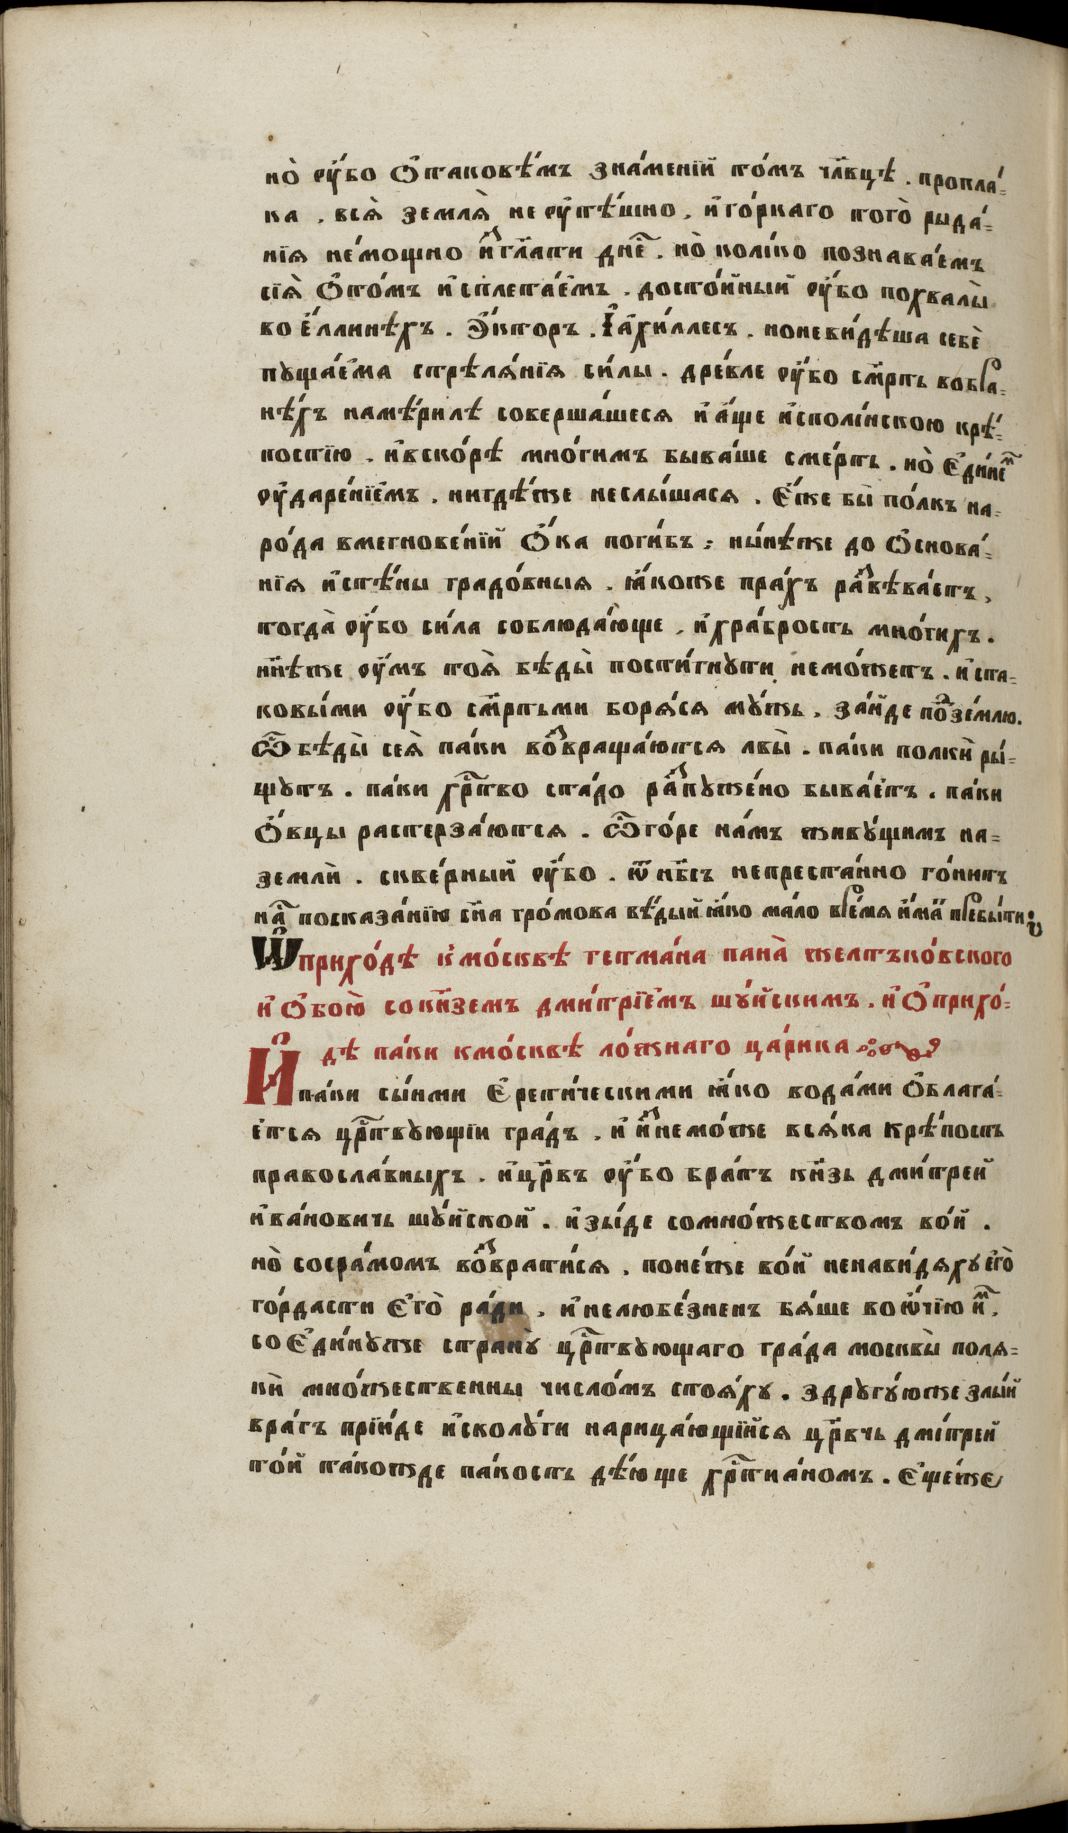 но̀ ᲂу҆́бо ѻ҆таковѣ́мъ зна́менїй то́мъ чл҃вцѣ . пропла́-
ка . всѧ̀ землѧ̀ не ᲂу҆тѣ́шно . и҆го́ркаго того̀ рыда́-
нїѧ немо́щно и҆зⷭ҇гл҃ати дне҃ . но̀ коли́ко познава́емъ
сїѧ̀ ѻ҆то́мъ и҆сплета́емъ . досто́йный ᲂу҆́бо похвалы̀
во є҆́ллинѣхъ . э҆́кторъ . і҆а҆хи́ллесъ .ноневи́дѣша себѐ
пуща́ема стрѣлѧ́нїѧ си́лы . дре́вле ᲂу҆́бо см҃рть вобра-
нѣ́хъ намѣ́рилѣ соверша́шесѧ и҆а҆́ще и҆споли́нскою крѣ́-
постїю . и҆вско́рѣ мно́гимъ быва́ше сме́рть . но̀ є҆ди́неⷨ
ᲂу҆даре́нїемъ . нигдѣ́же неслы́шасѧ . є҆́же бы̀ по́лкъ на-
ро́да вмегнове́нїй ѻ҆́ка поги́бъ ; ны́нѣже до ѻ҆снова́-
нїѧ и҆стѣ́ны градо́вныѧ . ꙗ҆́коже пра́хъ раⷥвѣва́етъ ,
тогда̀ ᲂу҆́бо си́ла соблюда́юще , и҆хра́брость мно́гихъ .
нн҃ѣже ᲂу҆́мъ тоѧ̀ бѣды̀ пости́гнути немо́жетъ . и҆ста-
ковы́ми ᲂу҆́бо см҃ртьми борѧ́сѧ му́жь , за́йде поⷣзе́млю .
ѿ бѣды̀ сеѧ̀ па́ки воⷥвраща́ютсѧ лвы̀ . па́ки полкѝ ры́-
щутъ . па́ки хрⷭ҇тво ста́до раⷥпуже́но быва́етъ . па́ки
ѻ҆́вцы растерза́ютсѧ . ѽго́ре на́мъ живу́щимъ на-
землѝ . скве́рный ᲂу҆́бо . ѿ нб҃съ непреста́нно го́нитъ
на́ⷭ посказа́нїю сн҃а гро́мова вѣ́дый ꙗ҆́ко ма́ло вре́мѧ и҆́маⷨ пребы́ти :
Ѽ прихо́дѣ к̾мо́сквѣ гетма́на пана̀ желтъко́вского
и҆ ѻ҆бою̀ сокн҃земъ дми́трїемъ шу́йскимъ . и҆ ѻ҆прихо́-
дѣ па́ки кмо́сквѣ ло́жнаго ца́рика
И҆па́ки сы́нми є҆рети́ческими ꙗ҆́ко вода́ми ѻ҆блага́-
етсѧ црⷭ҇твующїи гра́дъ . и҆ и҆знемо́же всѧ́ка крѣ́пость
правосла́вныхъ . и҆цр҃въ ᲂу҆́бо бра́тъ кн҃зь дми́трей
и҆ва́новичь шу́йской . и҆зы́де сомно́жествомъ во́й .
но̀ сосра́момъ воⷥврати́сѧ . поне́же во́й ненави́дѧху є҆го̀
го́рдасти є҆го̀ ра́ди . и҆нелюбе́зненъ бѧ́ше воѻ҆́чїю и҆́ⷨ .
соє҆ди́нуже страну̀ црⷭ҇твующаго гра́да москвы̀ полѧ-
кѝ мно́жественны число́мъ стоѧ́ху . здругу́юже злы́й
вра́гъ прїи́де и҆сколу́ги нарица́ющїйсѧ цр҃вчь дми́трей
то́й та́кожде па́кость дѣ́юще хрⷭ҇тиа́номъ . є҆ще́же